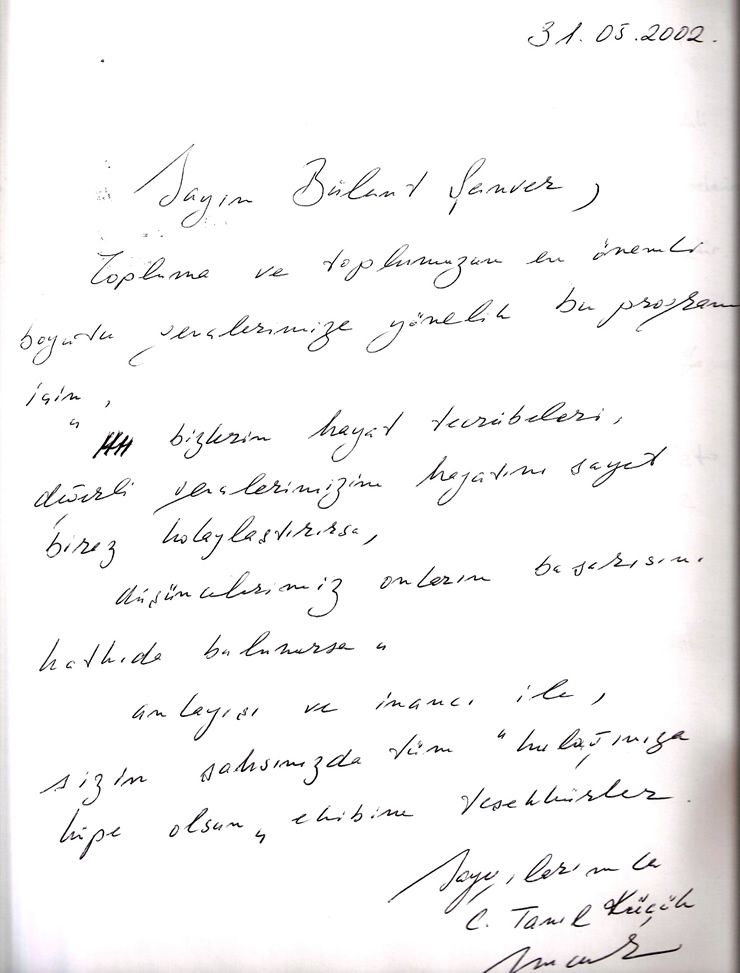 31.05.2002.
Sayın Bülent Şenver,
Topluma ve toplumuzun en önemli
boyutu gençlerimize yönelik bu program
için,
" bizlerin hayat tecrübeleri,
değerli gençlerimizin hayatını şayet
biraz kolaylaştırırsa,
düşüncelerimiz onların başarısına
katkıda bulunursa "
anlayışı ve inancı ile,
sizin şahsınızda tüm "kulağınıza
küpe olsun" ekibine teşekkürler.
Saygılarımla
C. Tanıl Küçük